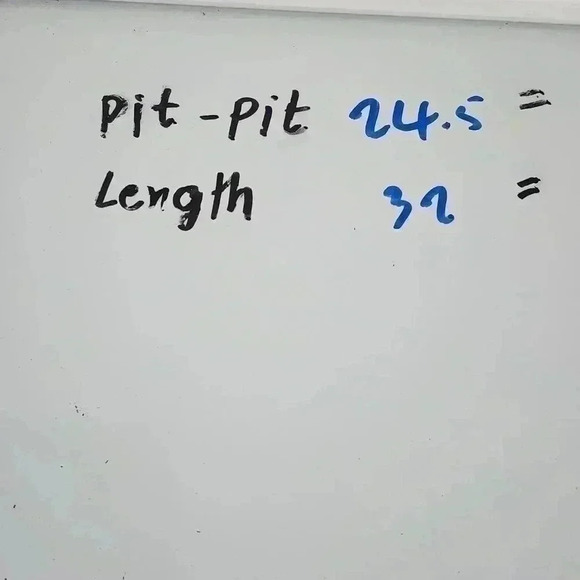 Pit - Pit 24.5 =
Length 32 =